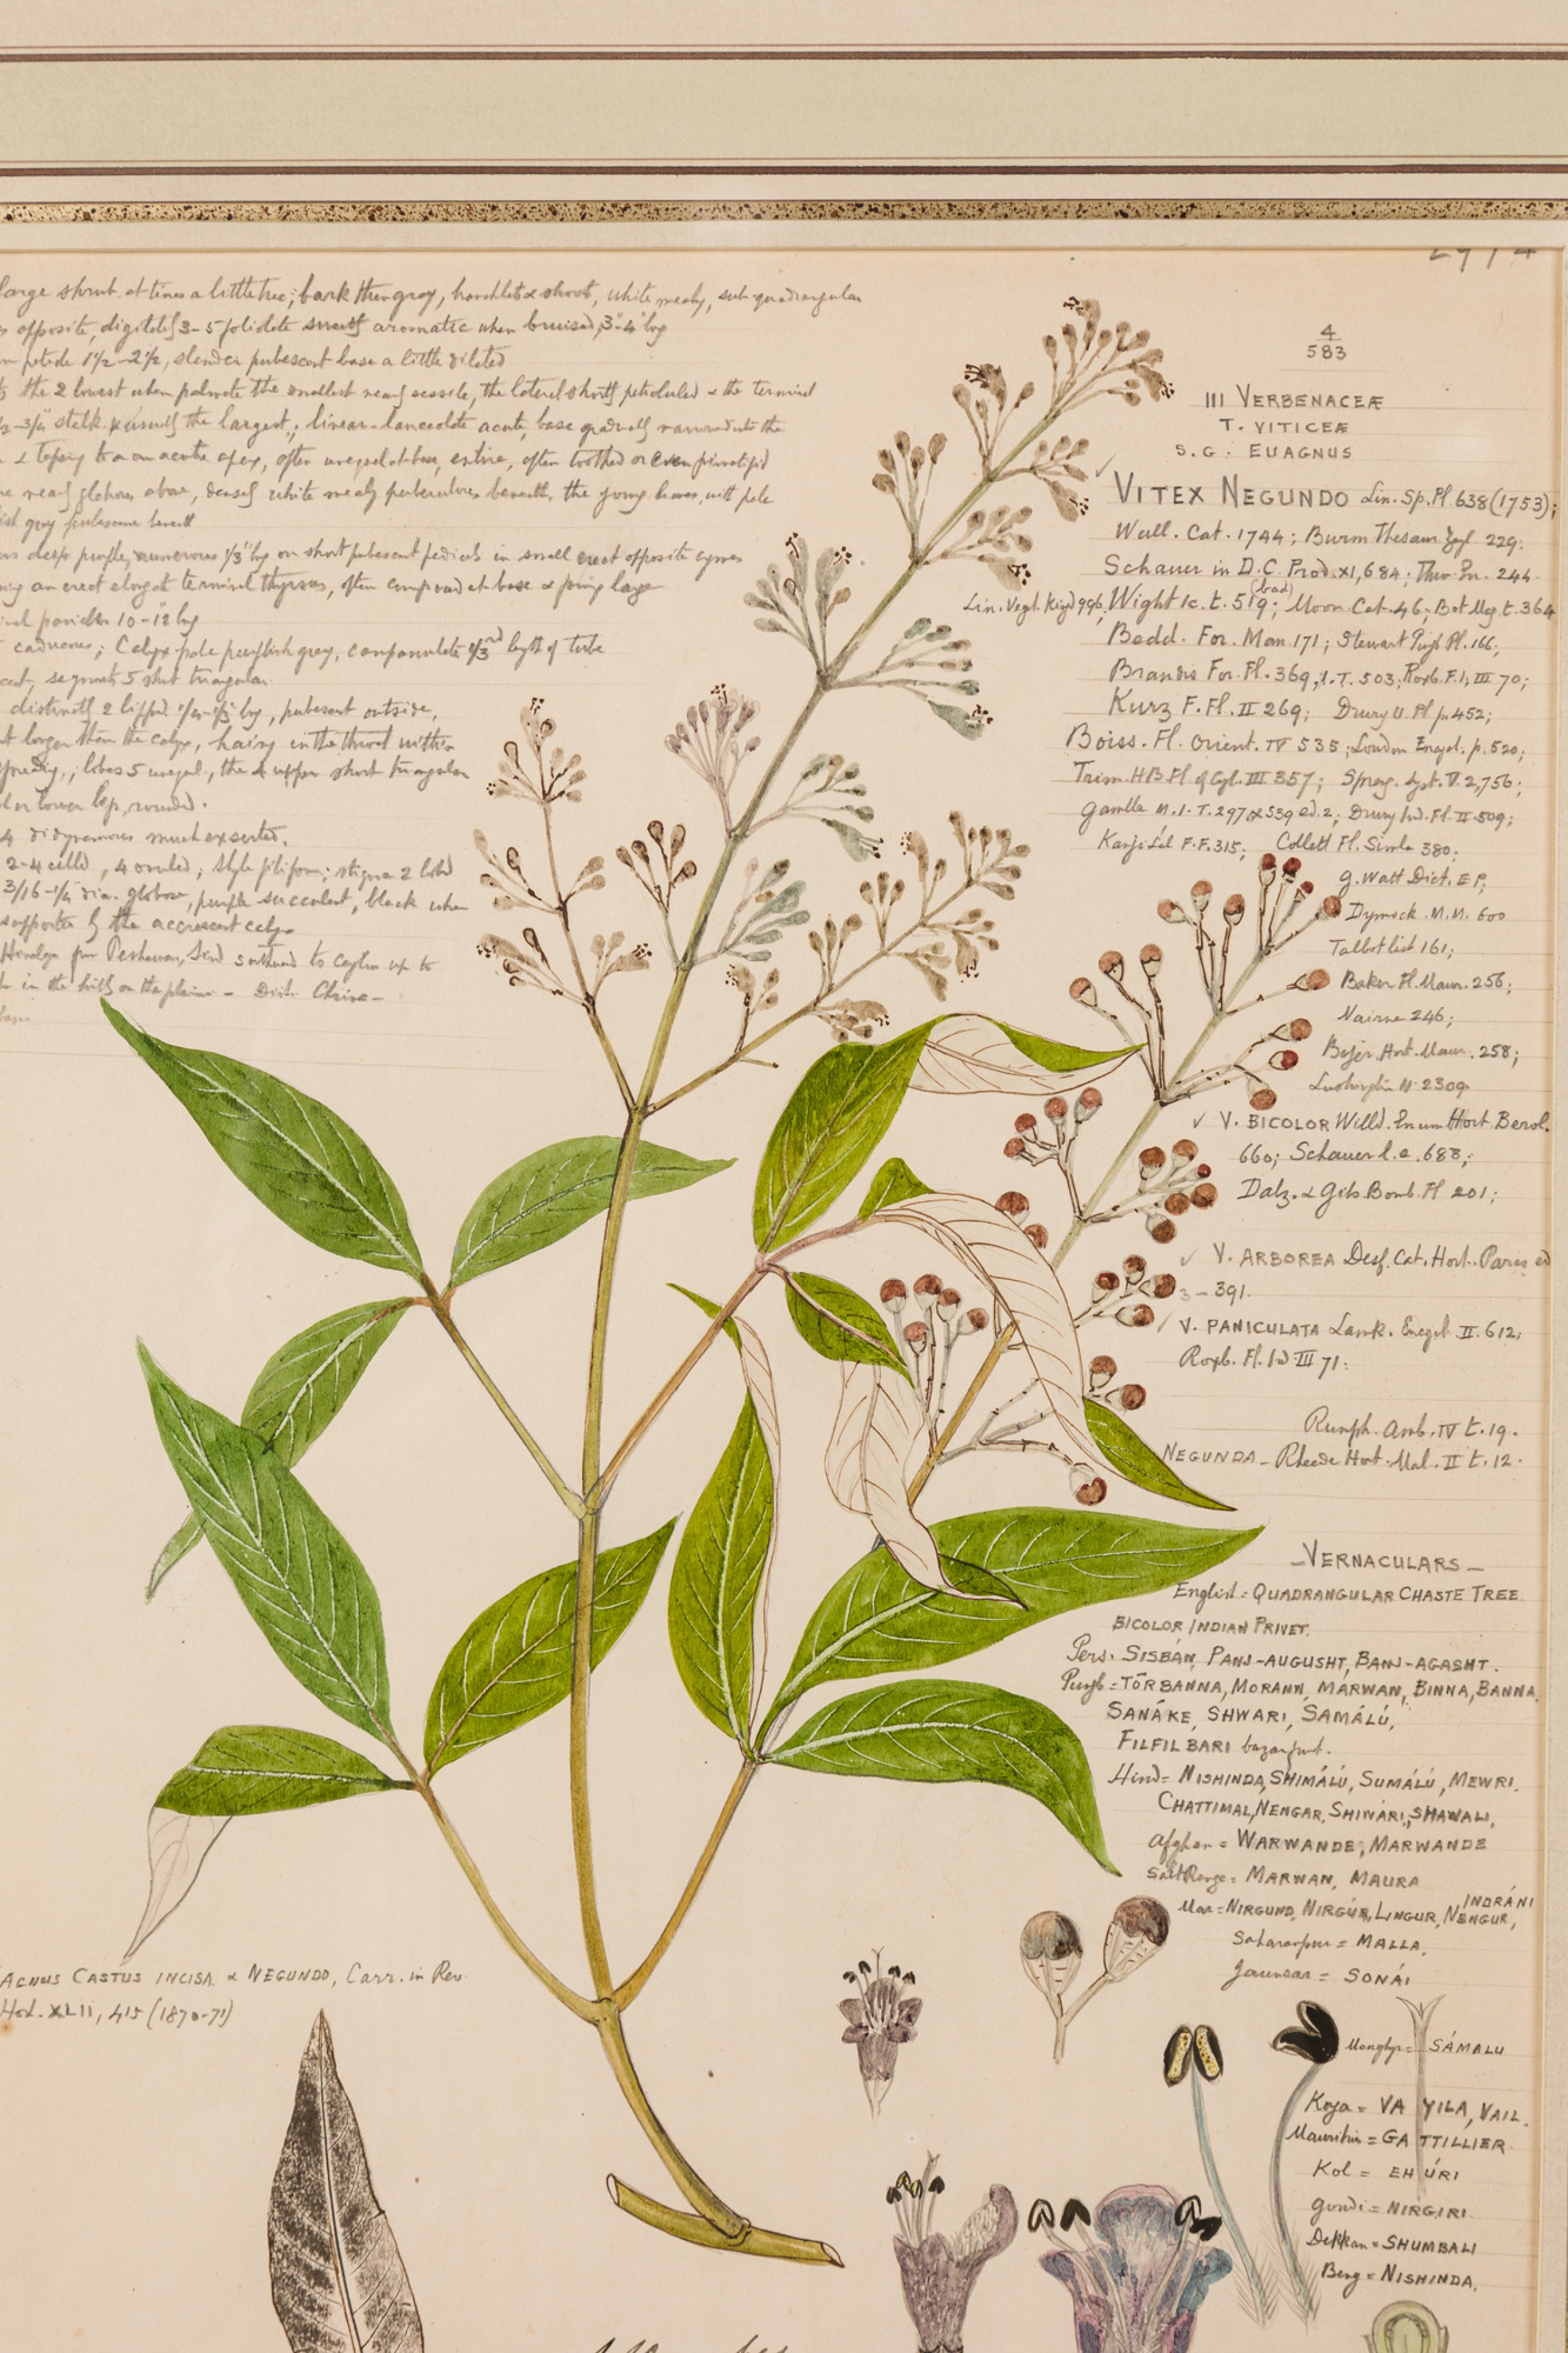 large shrub at times a little tree; bark thin gray, branchlets & shoots, white mealy, sub-quadrangular
opposite, digitately 3-5 foliolate smells aromatic when bruised, 3"-4" long
petiole 1½-2½, slender pubescent base a little dilated
the 2 lowest when palmate the smallest nearly sessile, the lateral shortly petioluled & the terminal
½-¾" stalk & usually the largest; linear-lanceolate acute, base gradually narrowed into the
& tapering to an acute apex, often unequal at base, entire, often toothed or even pinnatifid
nearly glabrous above, densely white mealy puberulous beneath, the young leaves with pale
gray pubescence beneath
deep purple, numerous ⅓" long on short pubescent pedicels in small erect opposite cymes
an erect elongate terminal thyrsus, often compound at base & forming large
panicles 10-12" long
caducous; Calyx pale purplish gray, campanulate ⅓rd length of tube
segments 5 short triangular
distinctly 2 lipped ¼-⅓" long, pubescent outside,
longer than the calyx, hairy in the throat within
spreading, lobes 5 unequal, the upper short triangular
or lower lip, rounded.
4 didynamous much exserted.
2-4 celled, 4 ovuled; style filiform; stigma 2 lobed
3/16-¼" dia. globose, purple succulent, black when
supported by the accrescent calyx
from Peshawar, Sind southward to Ceylon up to
in the hills on the plains - Dist. China -
4
583
III VERBENACEÆ
T. VITICEÆ
S.G. EUAGNUS
VITEX NEGUNDO Lin. Sp. Pl 638 (1753);
Wall. Cat. 1744; Burm Thesaur Zeyl 229.
Schauer in D.C. Prod. XI, 684; Thw. En. 244
(bad)
Wight Ic. t. 519; Moon Cat. 46; Bot Mag t. 364
Bedd. For. Man. 171; Stewart Punjb Pl. 166,
Brandis For. Fl. 369, I.T. 503; Roxb. F.I, III 70;
Kurz F. Fl. II 269; Drury U. Pl p. 452;
Boiss. Fl. Orient. IV 535; Loudon Encycl. p. 520;
Trim. H.B. Fl. of Cyl. III 357; Spreng. Syst. V. 2,756;
Gamble M.I.T. 297 & 539 ed. 2; Drury Ind. Fl. II 509;
Kanji Lál F.F. 315; Collett Fl. Simla 380;
G. Watt Dict. E.P;
Dymock M.M. 600
Talbot list 161;
Baker Fl. Maur. 256;
Nairne 246;
Bojer Hort. Maur. 258;
Lushington N 2309
✓ V. BICOLOR Willd. Enum Hort Berol.
660; Schauer l.c. 683;
Dalz. & Gibs. Bomb. Fl 201;
✓ V. ARBOREA Desf. Cat. Hort. Paris ed
3 - 391.
✓ V. PANICULATA Lamk. Encycl. II. 612;
Roxb. Fl. Ind III 71.
Rumph. Amb. IV t. 19.
NEGUNDA - Rheede Hort. Mal. II t. 12.
- VERNACULARS -
English = QUADRANGULAR CHASTE TREE
BICOLOR INDIAN PRIVET.
Pers. SISBÁN, PANJ-AUGUSHT, BANJ-AGASHT.
Punjb = TŌRBANNA, MORANN, MARWAN, BINNA, BANNA,
SANÁKE, SHWARI, SAMÁLÚ,
FILFIL BARI bazar fruit.
Hind = NISHINDA, SHIMÁLÚ, SUMÁLÚ, MEWRI.
CHATTIMAL, NENGAR, SHIWÁRI, SHAWALI,
Afghan = WARWANDE, MARWANDE
Salt Range = MARWAN, MAURA
INDRÁNI
Mar = NIRGUND, NIRGÚR, LINGUR, NENGUR,
Saharanpur = MALLA,
Jaunsar = SONÁI
Monghyr = SÁMALU
Koya = VAYILA, VAIL.
Mauritius = GATTILLIER
Kol = EHÚRI
Gondi = NIRGIRI
Dekkan = SHUMBALI
Beng = NISHINDA,
AGNUS CASTUS INCISA & NEGUNDO, Carr. in Rev.
Hort. XLII, 415 (1870-71)